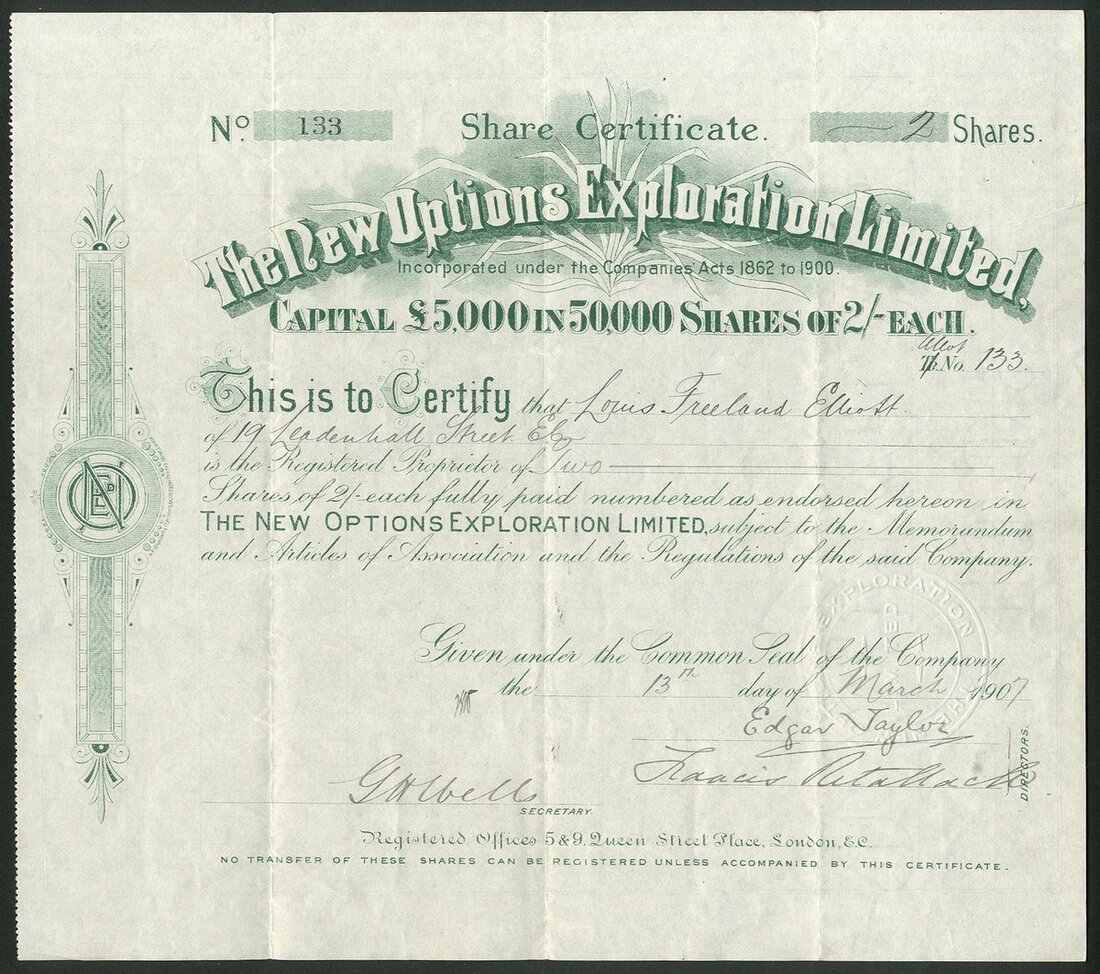 No. 133 Share Certificate. 2 Shares.
The New Options Exploration Limited,
Incorporated under the Companies Acts 1862 to 1900.
CAPITAL £5,000 IN 50,000 SHARES OF 2/- EACH.
Allot
Tr. No. 133.
This is to Certify that Louis Freeland Elliott
of 19 Leadenhall Street E.C.
is the Registered Proprietor of Two
Shares of 2/- each fully paid numbered as endorsed hereon in
THE NEW OPTIONS EXPLORATION LIMITED, subject to the Memorandum
and Articles of Association and the Regulations of the said Company.
EXPLORATION
Given under the Common Seal of the Company
the 13th day of March 1907
Edgar Taylor
Francis Retallack
DIRECTORS.
G H Wells
SECRETARY.
Registered Offices 5 & 9, Queen Street Place, London, E.C.
NO TRANSFER OF THESE SHARES CAN BE REGISTERED UNLESS ACCOMPANIED BY THIS CERTIFICATE.